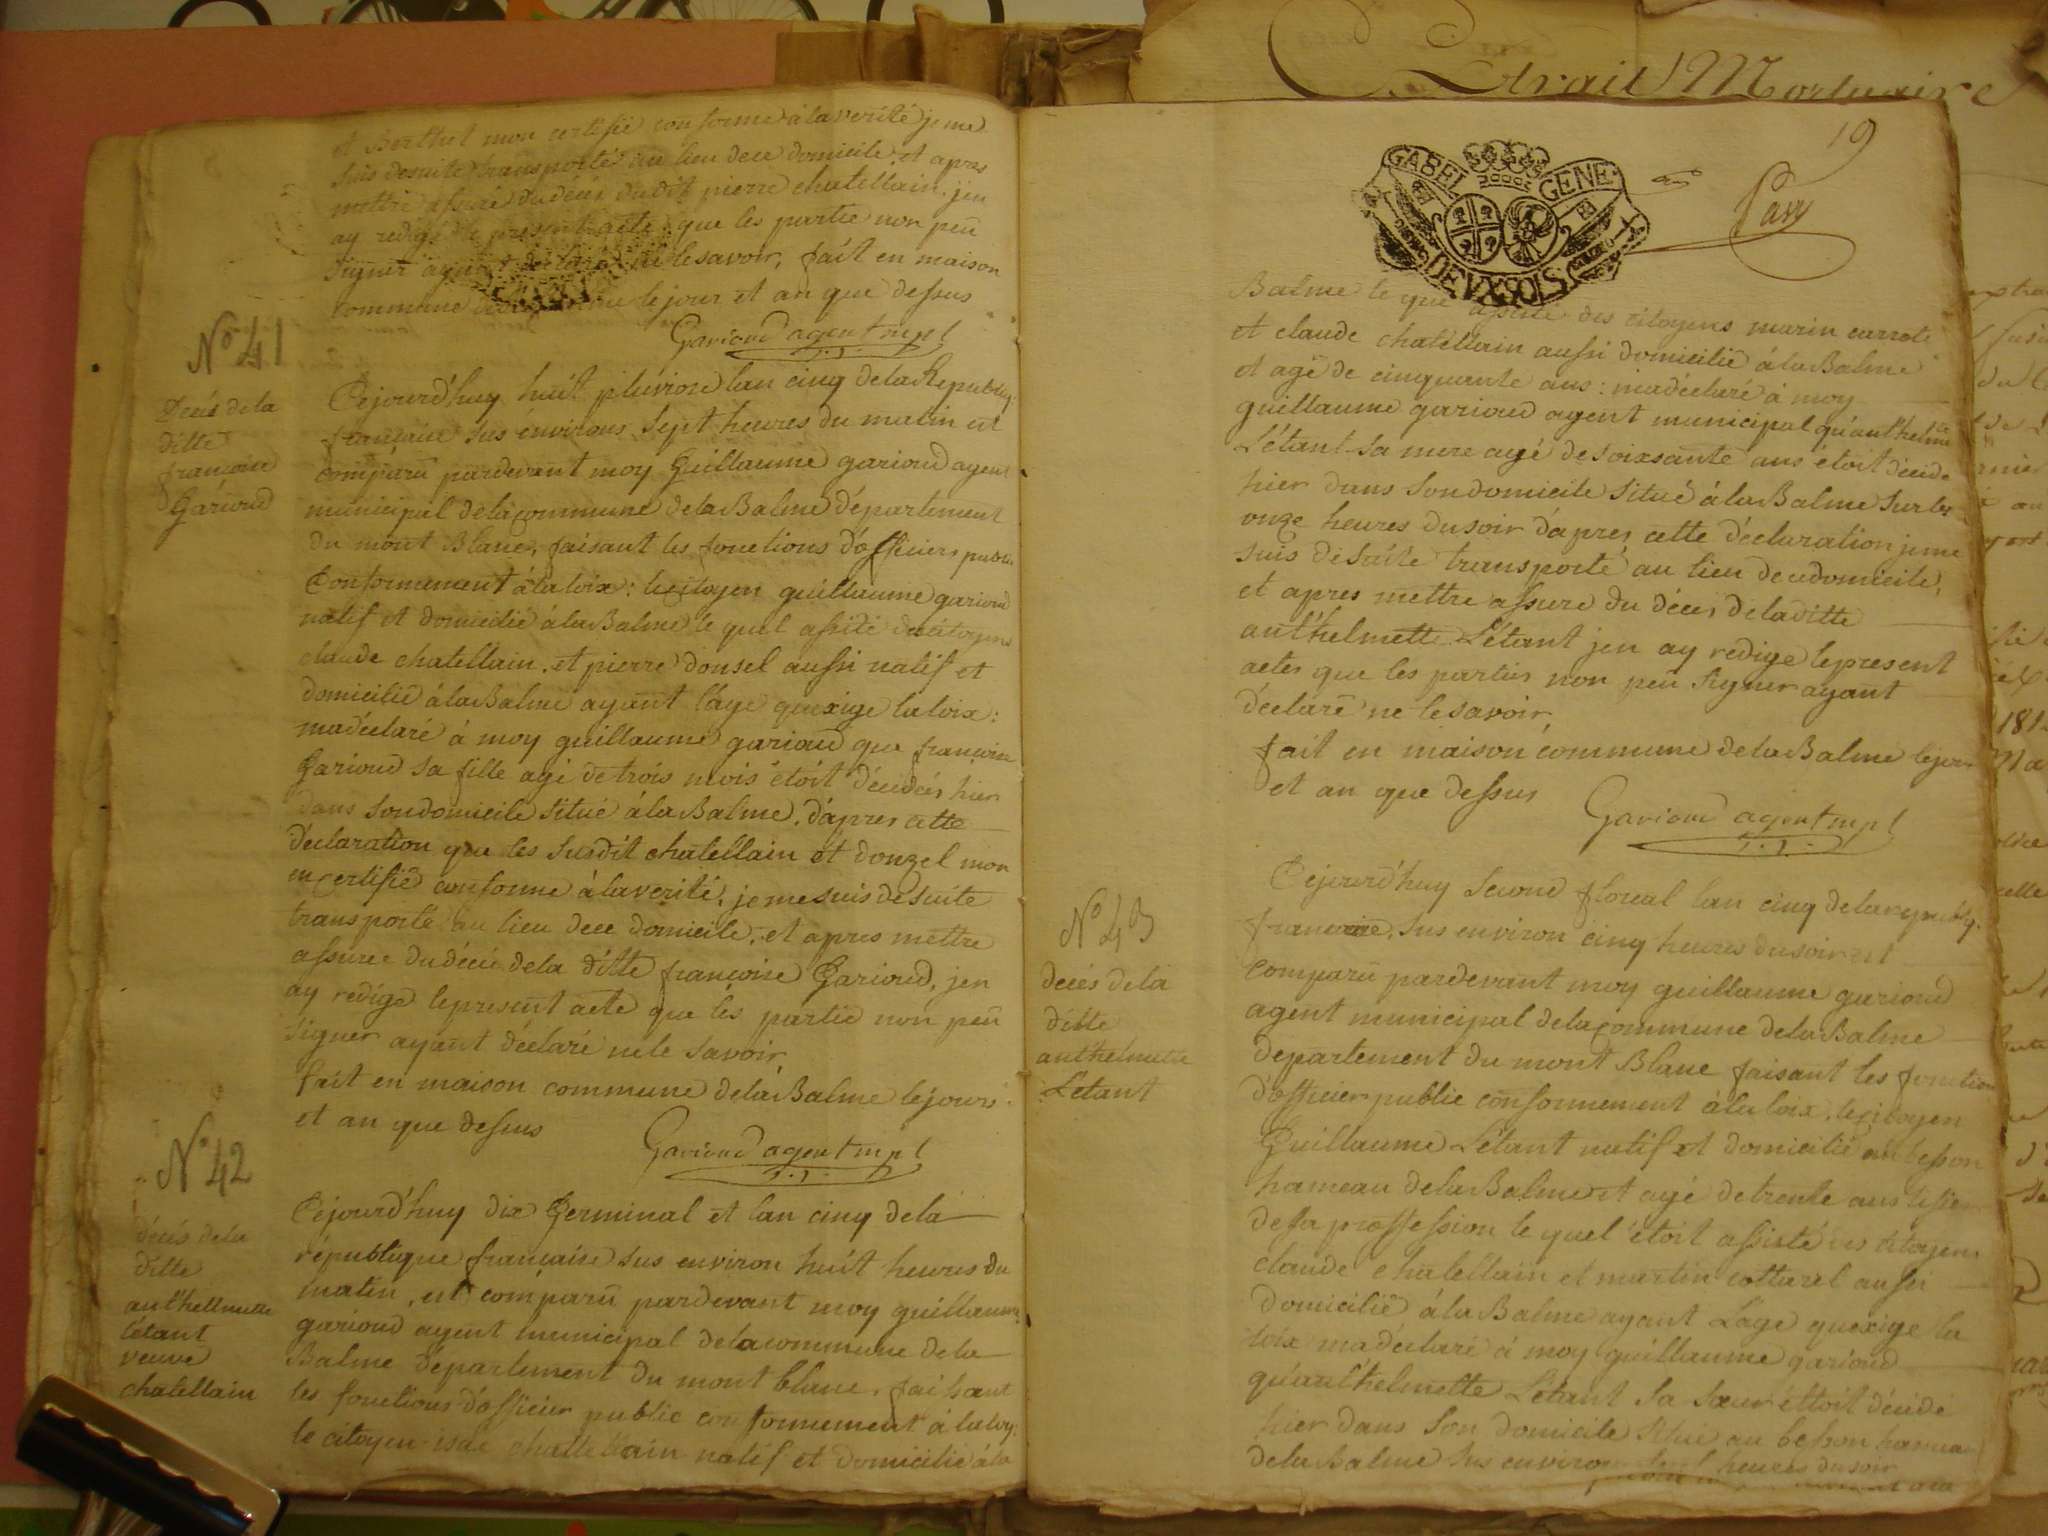 et Berthet mon certifié conforme à la verité je me
suis desuite transporté au lieu dece domicile, et apres
mettre assuré du décès dudit pierre chatellain, jen
ay redigé le present acte que les partie non peü
signer ayant déclaré ne le savoir, fait en maison
commune le jour et an que dessus
Garioud agent mpl
No 41
Décès de la
ditte
françoise
Garioud
Cejourd'huy huit pluviose lan cinq de la Republiq.
francaise sus environs sept heures du matin est
comparü pardevant moy Guillaume garioud agent
municipal dela commune dela Balme département
du mont Blanc, faisant les fonctions d'officiers public
Conformement à la loix: le citoyen guillaume garioud
natif et domicilié à la Balme le quel assité des citoyens
claude chatellain, et pierre donsel aussi natif et
domicilié à la Balme ayant l'age quexige la loix:
madéclaré à moy guillaume garioud que françoise
Garioud sa fille agé de trois mois étoit décédés hier
dans son domicile situé à la Balme, d'apres cette
déclaration que les susdit chatellain et donzel mon
en certifié conforme à la verité, je me suis désuite
transporté au lieu dece domicile, et apres mettre
assuree du décés de la ditte françoise Garioud, jen
ay redigé lepresent acte que les partie non peü
signer ayant déclaré ne le savoir
fait en maison commune dela Balme le jours
et an que dessus
Garioud agent mpl
No 42
décés de la
ditte
anthellmette
létant
veuve
chatellain
Cejourd'huy dix Germinal et lan cinq dela
république française sus environ huit heures du
matin, est comparü pardevant moy guillaume
garioud agent municipal dela commune dela
Balme département du mont blanc, faisant
les fonctions d'officier public conformement à la loy
le citoyen chattellain natif et domicilié à la
Extrait Mortuaire
19
GABEL GENE.
DEUX SOLS
Pavy
Balme le quel assité des citoyens marin carrote
et claude chatellain aussi domicilié à la Balme
et agé de cinquante ans: madéclaré à moy
guillaume garioud agent municipal qu'anthelme
Létant sa mere agé de soixsante ans étoit décéde
hier dans son domicile situé à la Balme sur les
onze heures du soir d'apres cette déclaration je me
suis désuite transporté au lieu dece domicile,
et apres mettre assure du décés de la ditte
anthelmette Létant jen ay redige lepresent
actes que les parties non peu signer ayant
déclaré ne le savoir,
fait en maison commune de la Balme le jour
et an que dessus
Garioud agent mpl
No 43
décés de la
ditte
anthelmette
Létant
Cejourd'huy second floreal lan cinq de la republiq.
francaise, sus environ cinq heures du soir est
comparü pardevant moy guillaume garioud
agent municipal dela commune dela Balme
département du mont Blanc faisant les fonction
d'officier public conformement à la loix, le citoyen
Guillaume Létant natif et domicilié au besson
hameau dela Balme et agé de trente ans
de sa proffession le quel étoit assisté des citoyens
claude chatellain et martin cottarel aussi
domicilié à la Balme ayant l'age quexige la
loix madéclaré à moy guillaume garioud
qu'anthelmette Létant sa sœur étoit décédé
hier dans son domicile situe au besson hameau
dela Balme sus environ heures du soir